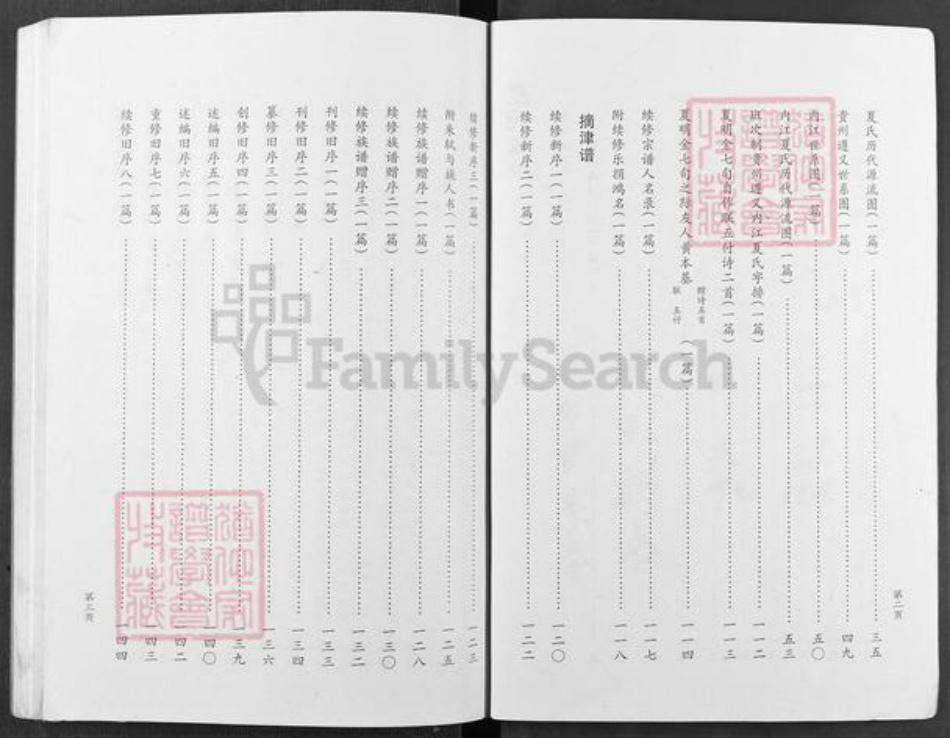 夏氏历代源流图(一篇)……三五
贵州遵义世系图(一篇)……四九
内江世系图(一篇)……五〇
内江夏氏历代源流图(一篇)……五三
班次制贵州遵义内江夏氏字榜(一篇)……一一二
夏明金七旬自作联五付诗二首(一篇)……一一三
夏明金七旬之际友人黄本基 赠诗五首 联五付 (一篇)……一一四
续修宗谱人名录(一篇)……一一七
附续修乐捐鸿名(一篇)……一一八
摘津谱
续修新序一(一篇)……一二〇
续修新序二(一篇)……一二二
第二页
续修新序三(一篇)……一二三
附朱轼与族人书(一篇)……一二五
续修族谱赠序一(一篇)……一二八
续修族谱赠序二(一篇)……一三〇
续修族谱赠序三(一篇)……一三二
刊修旧序一(一篇)……一三三
刊修旧序二(一篇)……一三四
纂修旧序三(一篇)……一三六
创修旧序四(一篇)……一三九
述编旧序五(一篇)……一四〇
述编旧序六(一篇)……一四二
重修旧序七(一篇)……一四三
续修旧序八(一篇)……一四四
第三页
FamilySearch